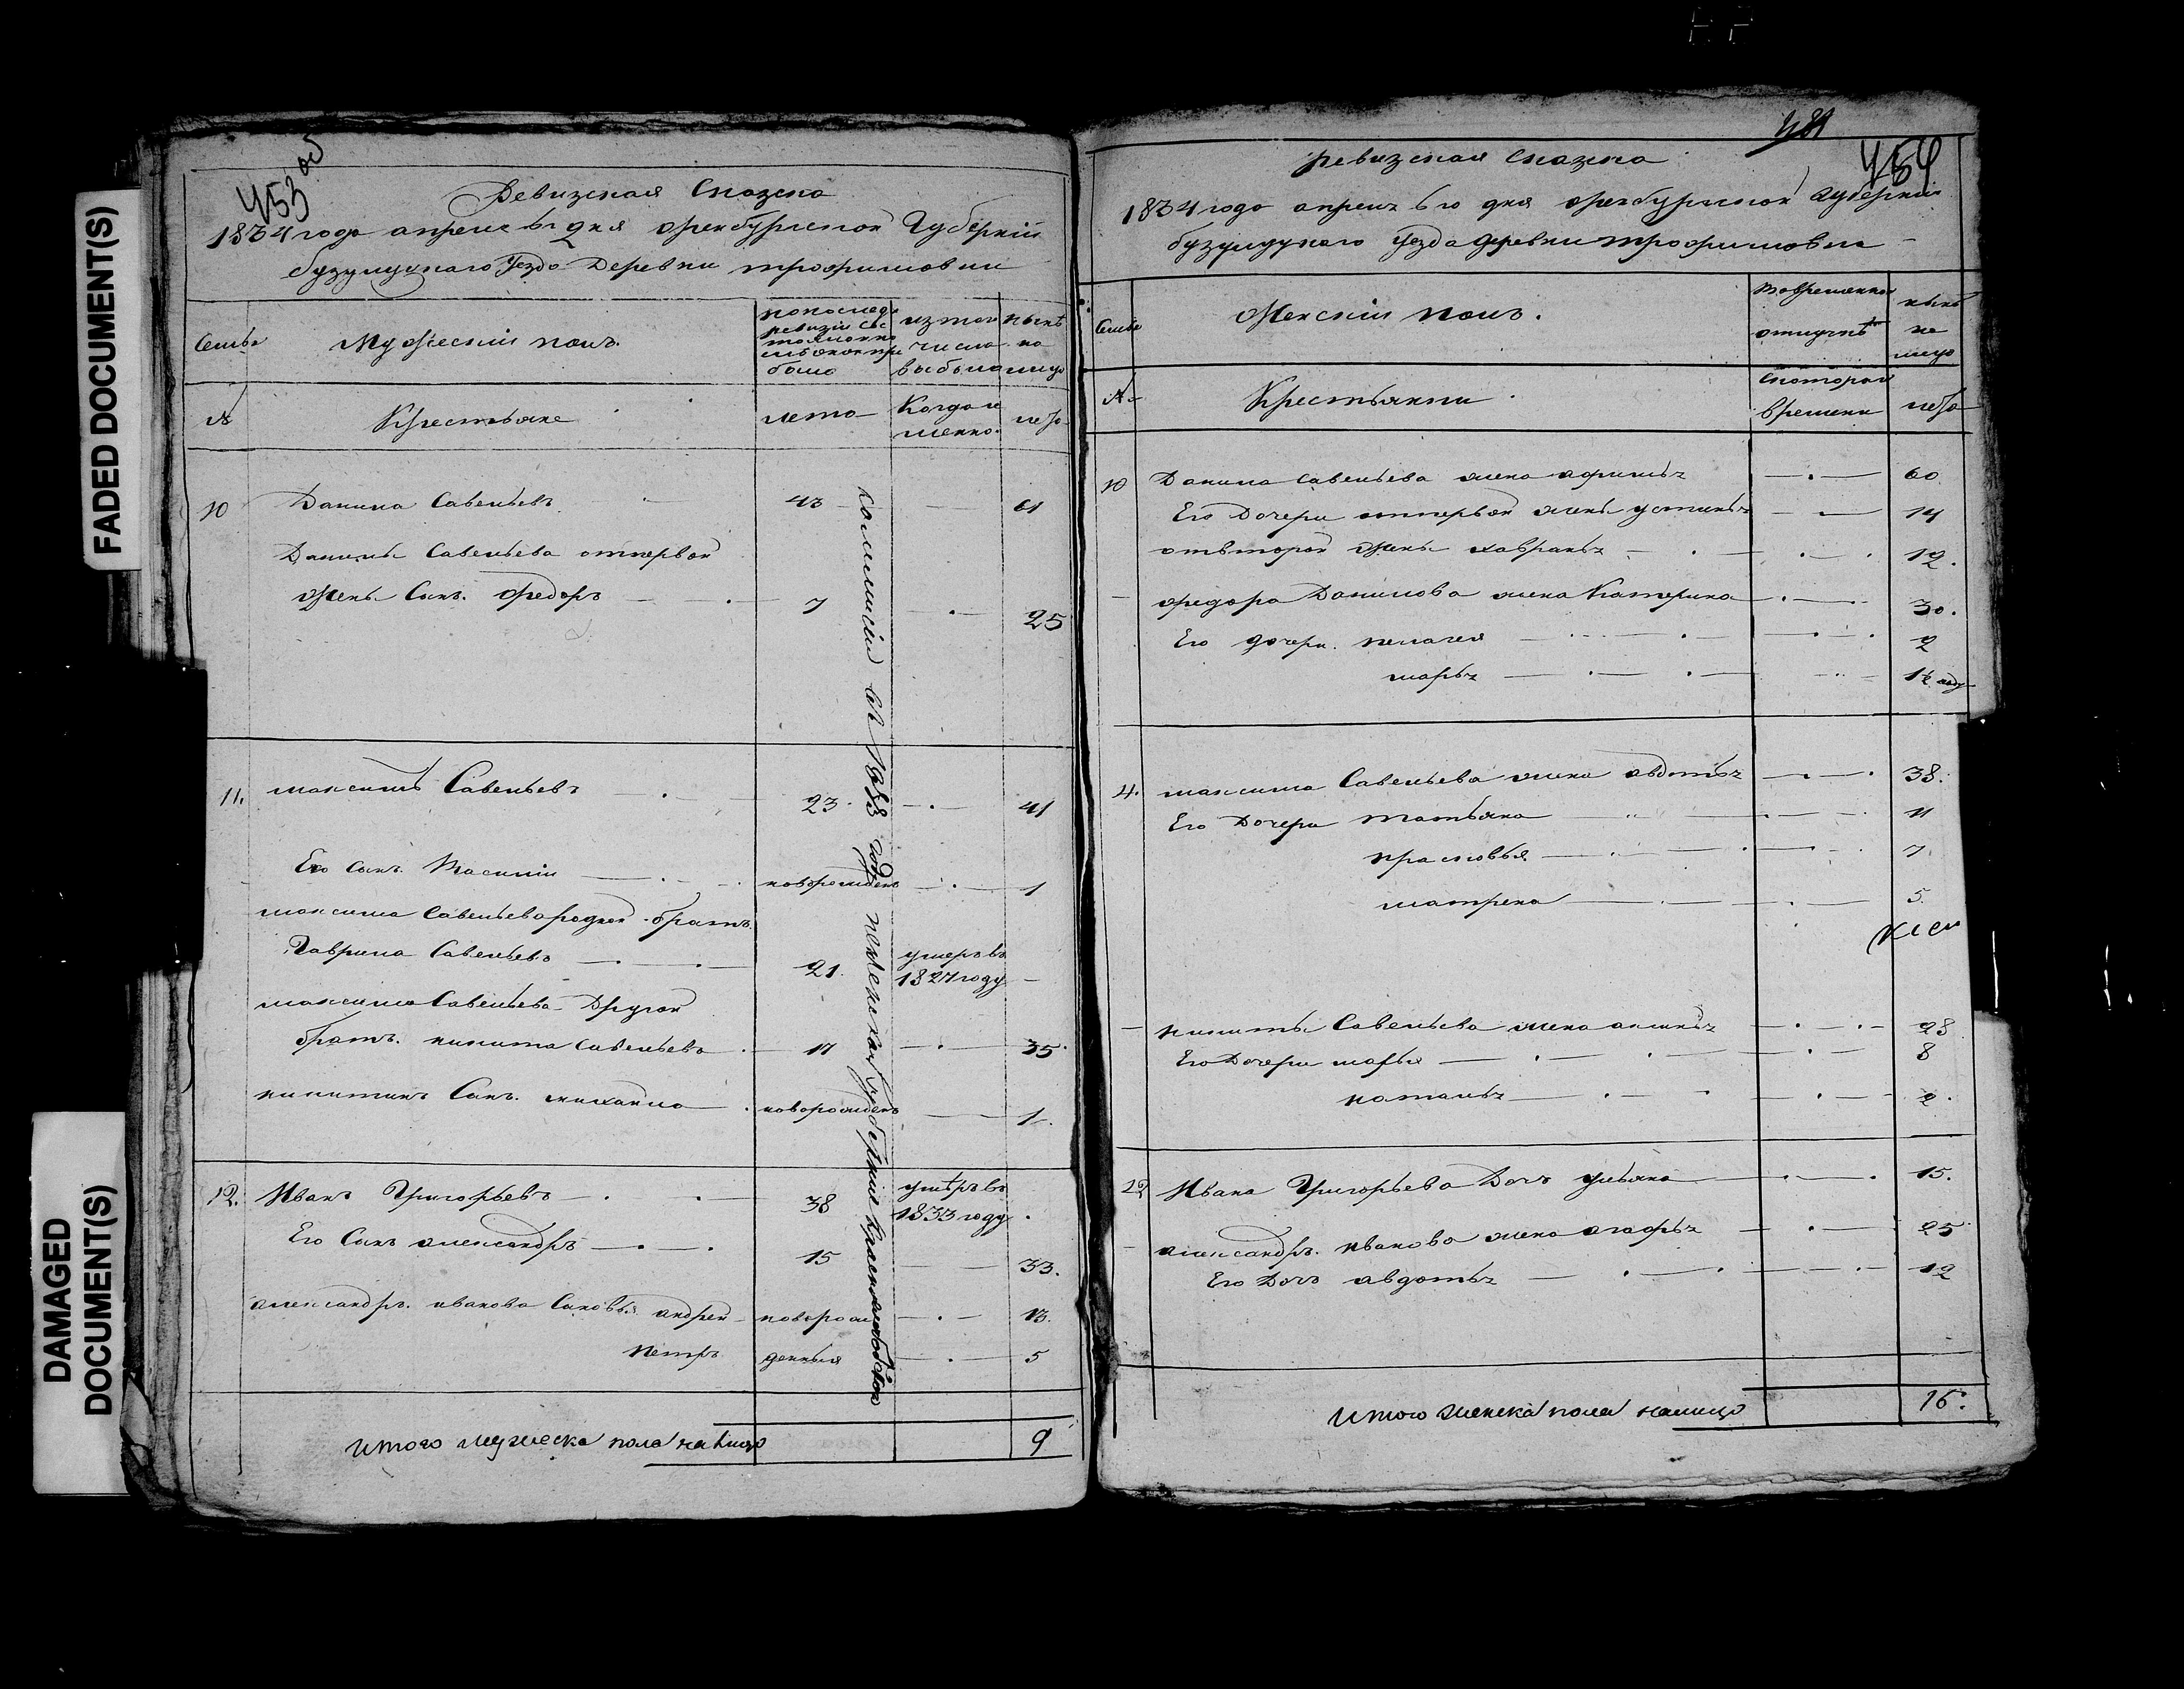 FADED DOCUMENT(S)
DAMAGED
DOCUMENT(S)
453 об
Ревизская Сказка
1834 года апреля 6го дня оренбургской Губернiи
бузулуцкаго Уезда Деревни трофимовки
Семьи
Мужескiй полъ.
из того
числа
выбыло
ныне
на
лицо
№
Крестьяне
лета
Когда и
менно
лета
10 Данила Савельевъ 43 61
Данилы Савельева отпервой
Жены Сынъ. Федоръ 7 25
11. максимъ Савельевъ 23. 41
Его сынъ. Василiй новорожденъ 1
максима Савельева родной братъ
Гаврила Савельевъ 21. умеръ въ 1827 году
максима Савельева Другой
братъ. никита савельевъ 17 35
никитинъ Сынъ. михайла новорожденъ 1.
12. Иванъ Григорьевъ 38 умеръ въ 1833 году
Его Сынъ александръ 15 33.
александръ. иванова Сыновья андрей новорож 13.
петръ денныя 5
итого мужеска пола налицо 9
481
454
ревизская сказка
1834 года апреля 6го дня оренбургской губернiи
бузулуцкаго уезда деревни трофимовки
Семьи
Женскiй полъ.
вовременной
отлучкѣ
ныне
на
лицо
№
Крестьянки
скоторого
времени
лета
10 Данила савельева жена афимья 60
Его Дочери отпервой жены устинья 14
отвторой жены хавранья 12.
федора Данилова жена Катерина 30.
Его дочери. пелагея 2
марья
максима Савельева жена авдотья 38.
Его Дочери татьяна 11
прасковья 7
матрена 5.
никиты Савельева жена аксинья 28
Его Дочери марья 8
наталья 2.
Ивана Григорьева Дочь ульяна 15.
александръ. иванова жена агафья 25
Его Дочь авдотья 12
итого женска пола налицо 16.